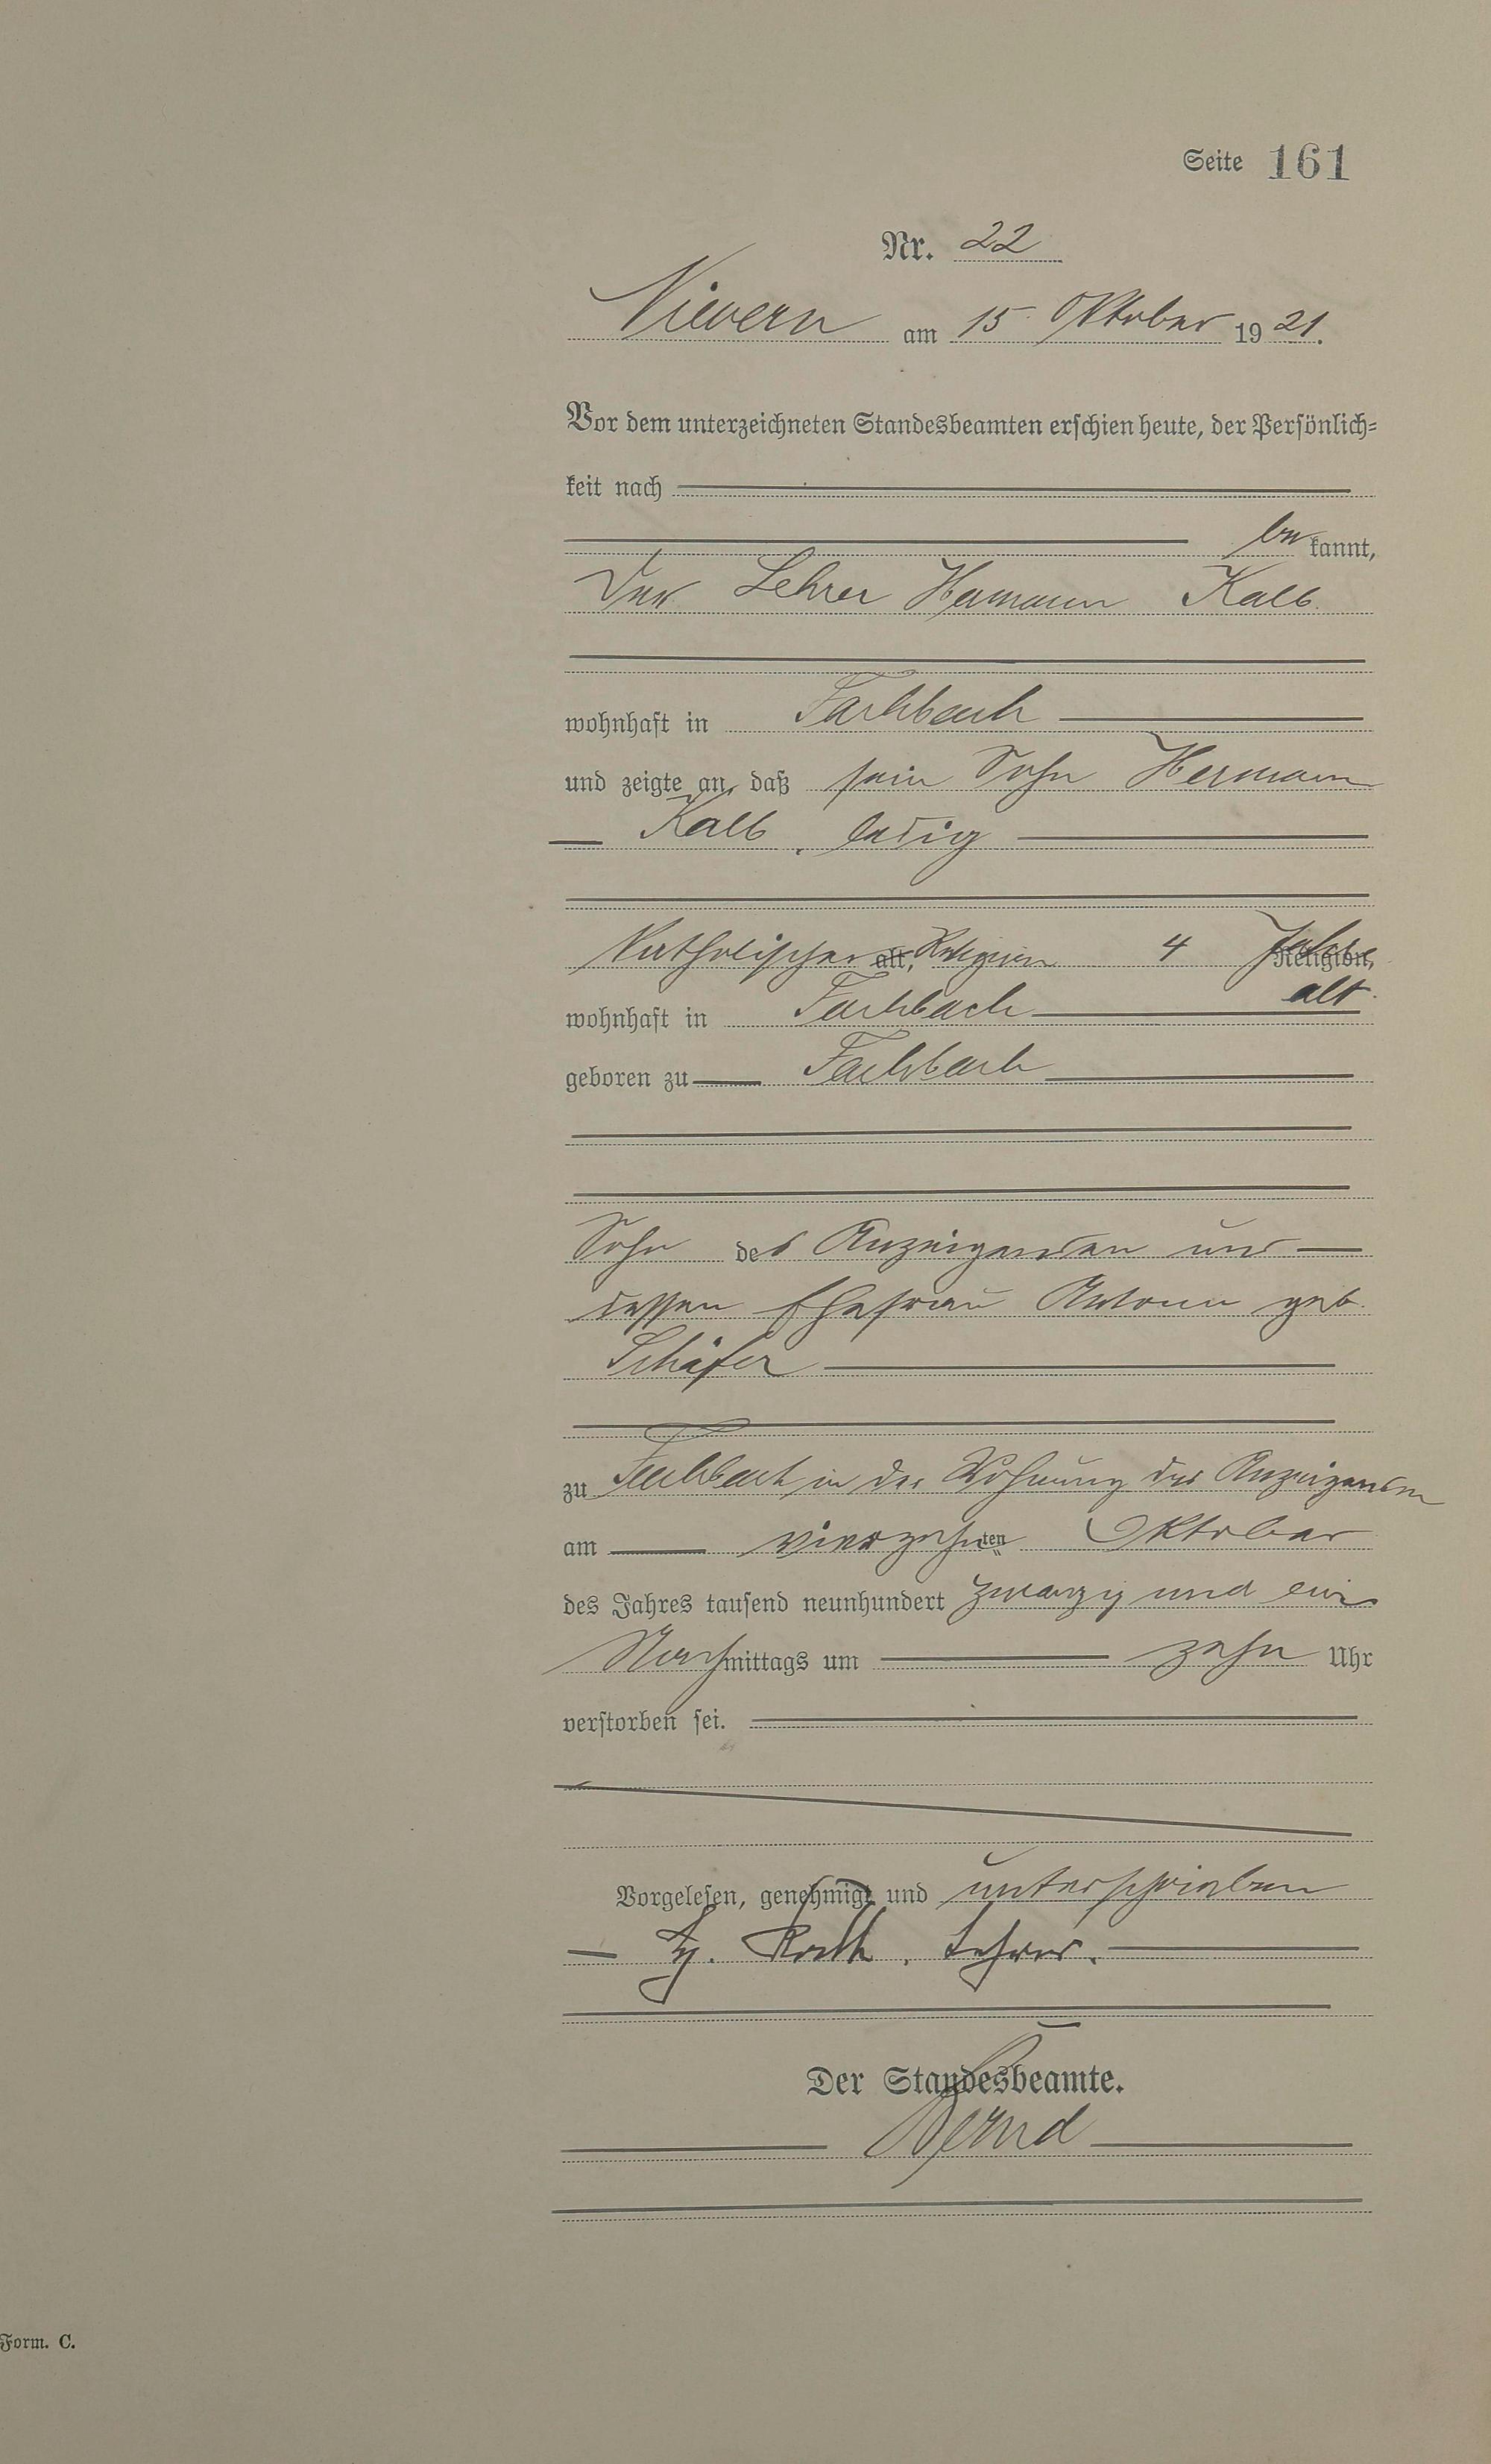 Seite 161
Nr. 22
Nievern am 15. Oktober 1921.
Vor dem unterzeichneten Standesbeamten erschien heute, der Persönlich=
keit nach
be kannt,
der Lehrer Hermann Kalb
wohnhaft in Fachbach
und zeigte an, daß sein Sohn Hermann
Kalb, ledig
Katholischer alt, Religion 4 Jahre Religion,
alt
wohnhaft in Fachbach
geboren zu Fachbach
Sohn des Anzeigenden und
dessen Ehefrau geb.
Schäfer
zu Fachbach in der Wohnung des Anzeigenden
am vierzehnten Oktober
des Jahres tausend neunhundert zwanzig und ein
Nachmittags um zehn Uhr
verstorben sei.
Vorgelesen, genehmigt und unterschrieben
Lehrer.
Der Standesbeamte.
Form. C.